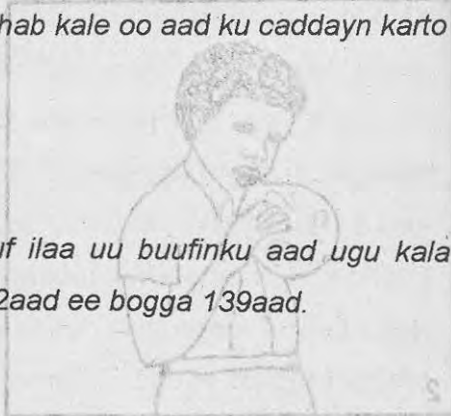 hab kale oo aad ku caddayn karto
uf ilaa uu buufinku aad ugu kala
2aad ee bogga 139aad.
2